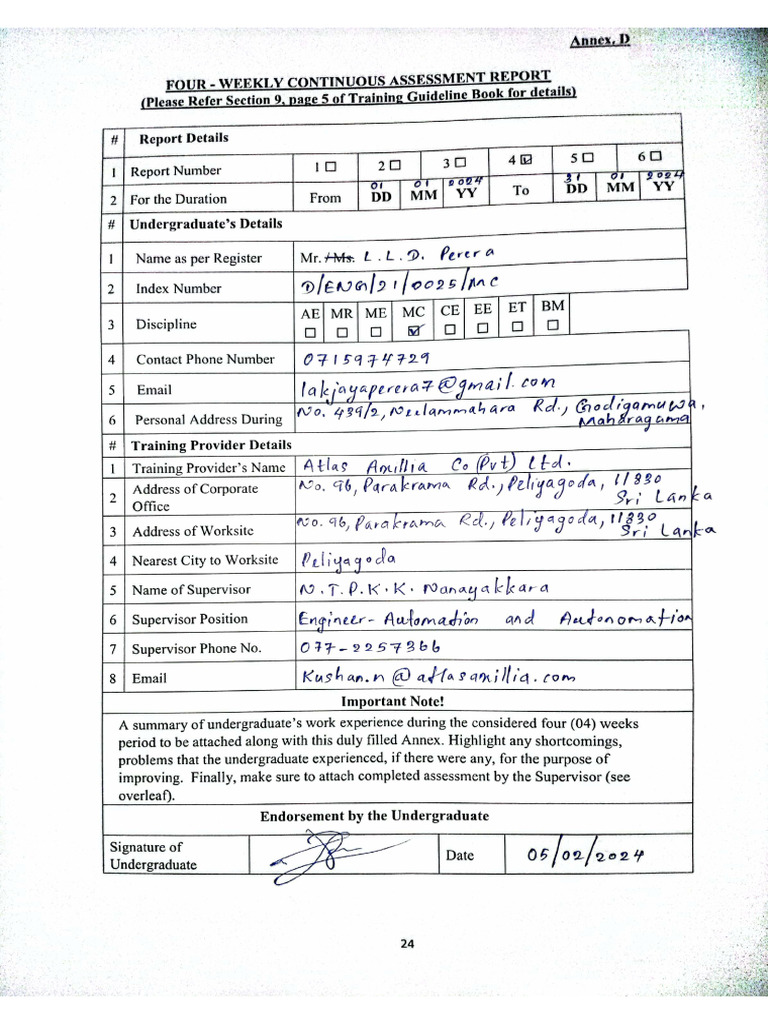 Annex. D
FOUR - WEEKLY CONTINUOUS ASSESSMENT REPORT
(Please Refer Section 9, page 5 of Training Guideline Book for details)
# Report Details
1 Report Number 1 ☐ 2 ☐ 3 ☐ 4 ☑ 5 ☐ 6 ☐
01 01 2024 31 01 2024
2 For the Duration From DD MM YY To DD MM YY
# Undergraduate's Details
1 Name as per Register Mr. /Ms. L.L.D. Perera
2 Index Number D/ENG/21/0025/MC
AE MR ME MC CE EE ET BM
3 Discipline ☐ ☐ ☐ ☑ ☐ ☐ ☐ ☐
4 Contact Phone Number 0715974729
5 Email lakjayaperera7@gmail.com
6 Personal Address During No. 439/2, Neelammahara Rd., Godigamuwa,
Maharagama
# Training Provider Details
1 Training Provider's Name Atlas Axillia Co (Pvt) Ltd.
2 Address of Corporate No. 96, Parakrama Rd., Peliyagoda, 11830
Office Sri Lanka
3 Address of Worksite No. 96, Parakrama Rd., Peliyagoda, 11830
Sri Lanka
4 Nearest City to Worksite Peliyagoda
5 Name of Supervisor N.T.P.K.K. Nanayakkara
6 Supervisor Position Engineer- Automation and Autonomation
7 Supervisor Phone No. 077-2257366
8 Email Kushan.n@atlasaxillia.com
Important Note!
A summary of undergraduate's work experience during the considered four (04) weeks
period to be attached along with this duly filled Annex. Highlight any shortcomings,
problems that the undergraduate experienced, if there were any, for the purpose of
improving. Finally, make sure to attach completed assessment by the Supervisor (see
overleaf).
Endorsement by the Undergraduate
Signature of
Undergraduate Date 05/02/2024
24